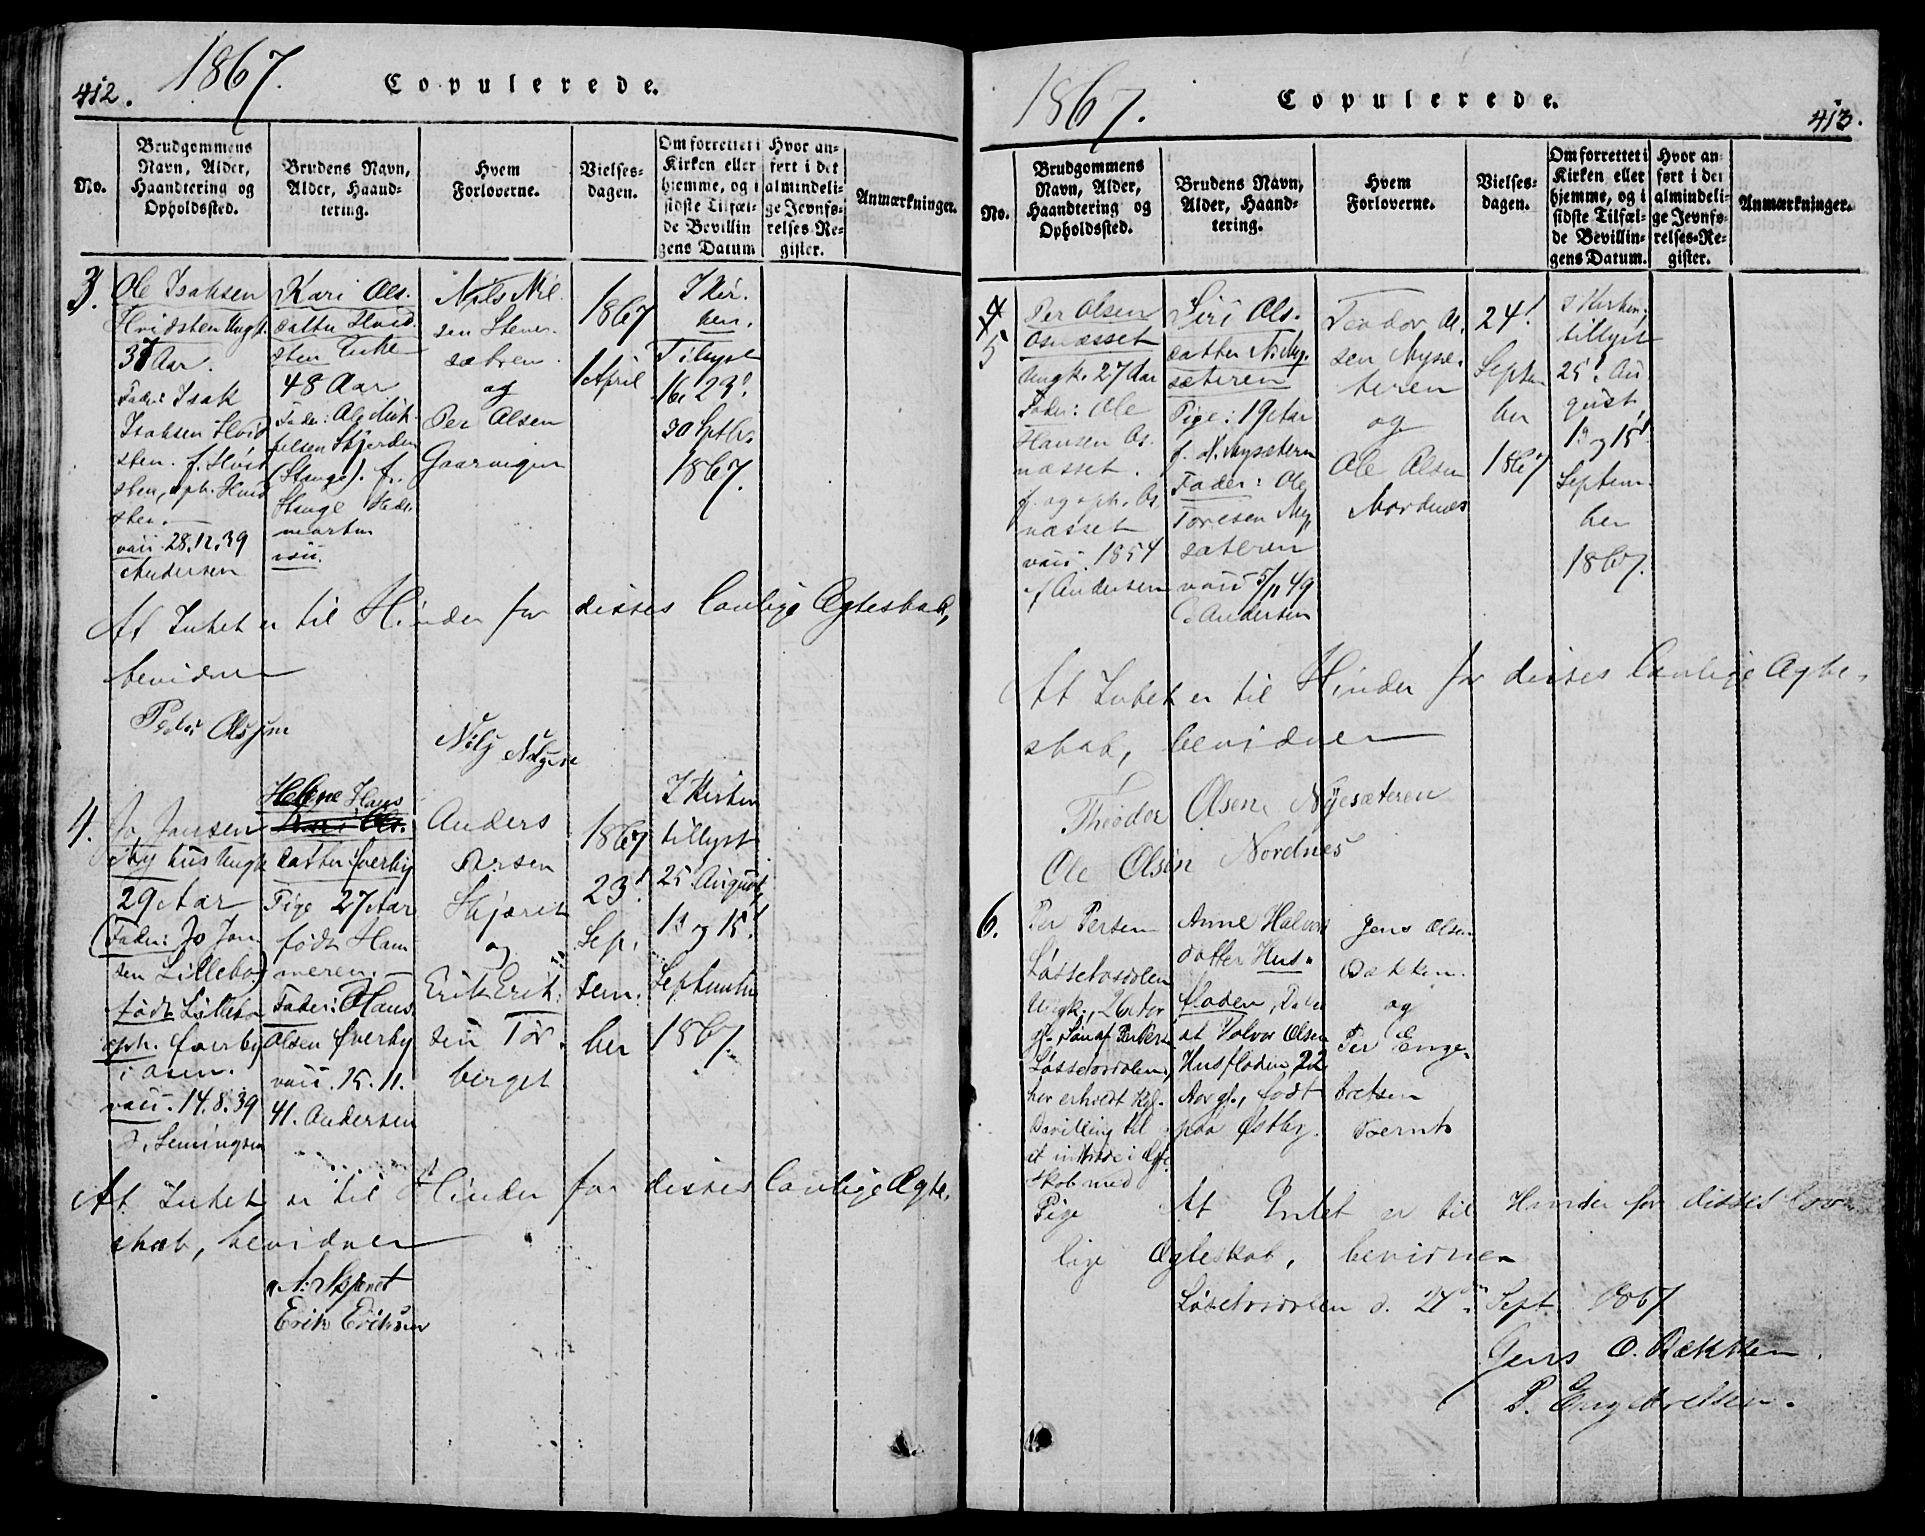 412.
1867.
Copulerede.
No.
Brudgommens
Navn, Alder,
Haandtering og
Opholdssted.
Brudens Navn,
Alder, Haand-
tering.
Hvem
Forloverne.
Vielses-
dagen.
Om forrettet i
Kirken eller
hjemme, og i
sidste Tilfæl-
de Bevillin
gens Datum
Hvor an-
ført i det
almindeli-
ge Jevnfø-
relses-Re-
gister.
Anmærkninger.
3.
Ole Isaksen
Hvidsten Ungk.
37 Aar.
Fader: Isak
Isaksen Hvid
sten. f. Hvid
sten, oph. Hvid
sten.
vacc. 28.12.39
Andersen
Kari Ols.
datter Hvid
sten Enke
48 Aar
Fader: Ole Mik
kelsen Skjerden
(Stange). f.
Stange Hede
marken
vacc.
Nils Nil
sen Stener
sætren
og
Per Olsen
Gaarvigen
1867
1 April
I Kir.
ken.
Tillyst
16. 23!
30 Septbr.
1867.
At Intet er til Hinder for disses lovlige Ægteskab,
bevidner
Peder Olsen
Nils Nilsen
4.
Jo Jonsen
Nyhus Ungk
29 Aar
(Fader: Jo Jon
sen Lillebo)
født Lillebo
oph. Øverby
i Osen.
vacc. 14.8.39
J. Lemingsen
Helene Hans
Kari Ols.
datter Øverby
Pige 27 Aar
født Ham
meren.
Fader: Hans
Olsen Øverby
vacc. 15.11.
41. Andersen
Anders
Arsen
Skjæret
og
Erik Erik.
sen Tor
berget
1867
23!
Sep.
tem.
ber
I Kirken
tillyst
25 August,
1! og 15!
September
1867.
At Intet er til Hinder for disses lovlige Ægte.
skab, bevidner
A. Skjæret
Erik Eriksen
1867.
Copulerede.
413.
No.
Brudgommens
Navn, Alder,
Haandtering og
Opholdssted.
Brudens Navn,
Alder, Haand-
tering.
Hvem
Forloverne.
Vielses-
dagen.
Om forrettet i
Kirken eller
hjemme, og i
sidste Tilfæl-
de Bevillin-
gens Datum.
Hvor an-
ført i det
almindeli-
ge Jevnfø-
relses-Re-
gister.
Anmærkninger.
4
5
Per Olsen
Osnæsset
Ungk. 27 Aar
Fader: Ole
Hansen Os.
næsset.
f. og oph. Os
næsset
vacc. 1854
af Andersen
Siri Ols.
datter N. Ny.
sæteren
Pige: 19 Aar
f. N. Nysætern
Fader: Ole
Toresen Ny
sæteren
vacc 5/11 49
C. Andersen
Teodor Ol.
sen Nysæ.
teren
og
Ole Olsen
Nordnes
24!
Septem
ber
1867
I Kirken,
tillyst
25! Au
gust,
1! og 15!
Septem.
ber
1867.
At Intet er til Hinder for disses lovlige Ægte.
skab, bevidner
Theodor Olsen Nyesæteren
Ole Olsen Nordnes
6.
Per Persen
Løssetosdalen
Ungk., 26 Aar
gl., Søn af Per Pers
Løssetosdalen,
har erholdt Kgl.
Bevilling til
at indtræde i Ægte
skab med
Pige
Anne Halvors
datter Hus.
floden, Datter
af Halvor Olsen
Husfloden, 22
Aar gl., født
paa Østby.
Jens Olsen
Bækken.
og
Per Enge.
bretsen
At Intet er til Hinder for disses lov
lige Ægteskab, bevidner
Løssetosdalen d. 27de Sept. 1867
Jens O. Bækken.
P. Engebretsen.